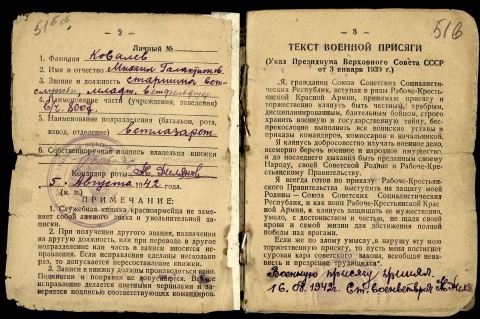 51 об
— 2 —
Личный №
1. Фамилия Ковалев
2. Имя и отчество Михаил
3. Звание и должность старшина вет-
службы, младш. ветфельдшер
4. Наименование части (учреждения, заведения)
5. Наименование подразделения (батальон, рота,
взвод, отделение) ветлазарет
6. Собственноручная подпись владельца книжки
Командир роты
5. Августа 1942 года.
(м. п.)
ПРИМЕЧАНИЕ:
1. Служебная книжка красноармейца не заме-
няет собой личного знака и увольнительной за-
писки.
2. При получении другого звания, назначении
на другую должность, или при переводе в другое
подразделение или часть в записи вносятся ис-
правления. Если исправления сделаны несколько
раз, то допускается пересоставление книжки.
3. Записи в книжку должны производиться ясно.
Подчистки и поправки не допускаются. Всякое
исправление делается цветными чернилами и за-
веряется подписью соответствующих командиров.
51в
— 3 —
ТЕКСТ ВОЕННОЙ ПРИСЯГИ
(Указ Президиума Верховного Совета СССР
от 3 января 1939 г.)
„Я, гражданин Союза Советских Социалистических
Республик, вступая в ряды Рабоче-Кресть-
янской Красной Армии, принимаю присягу и
торжественно клянусь быть честным, храбрым,
дисциплинированным, бдительным бойцом, строго
хранить военную и государственную тайну, бес-
прекословно выполнять все воинские уставы и
приказы командиров, комиссаров и начальников.
Я клянусь добросовестно изучать военное дело,
всемерно беречь военное и народное имущество
и до последнего дыхания быть преданным своему
Народу, своей Советской Родине и Рабоче-Кре-
стьянскому Правительству.
Я всегда готов по приказу Рабоче-Крестьян-
ского Правительства выступить на защиту моей
Родины — Союза Советских Социалистических
Республик, и как воин Рабоче-Крестьянской Красной
Армии, я клянусь защищать её мужественно,
умело, с достоинством и честью, не щадя своей
крови и самой жизни для достижения полной
победы над врагами.
Если же по злому умыслу я нарушу эту мою
торжественную присягу, то пусть меня постигнет
суровая кара советского закона, всеобщая нена-
висть и презрение трудящихся“.
Военную присягу принял
16.08.1942 г. Ст. военветврач